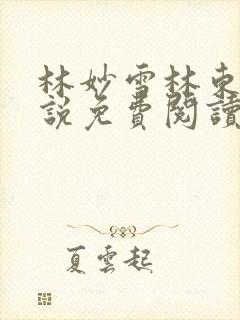 林妙雪林東
說免費閱讀
夏雲起